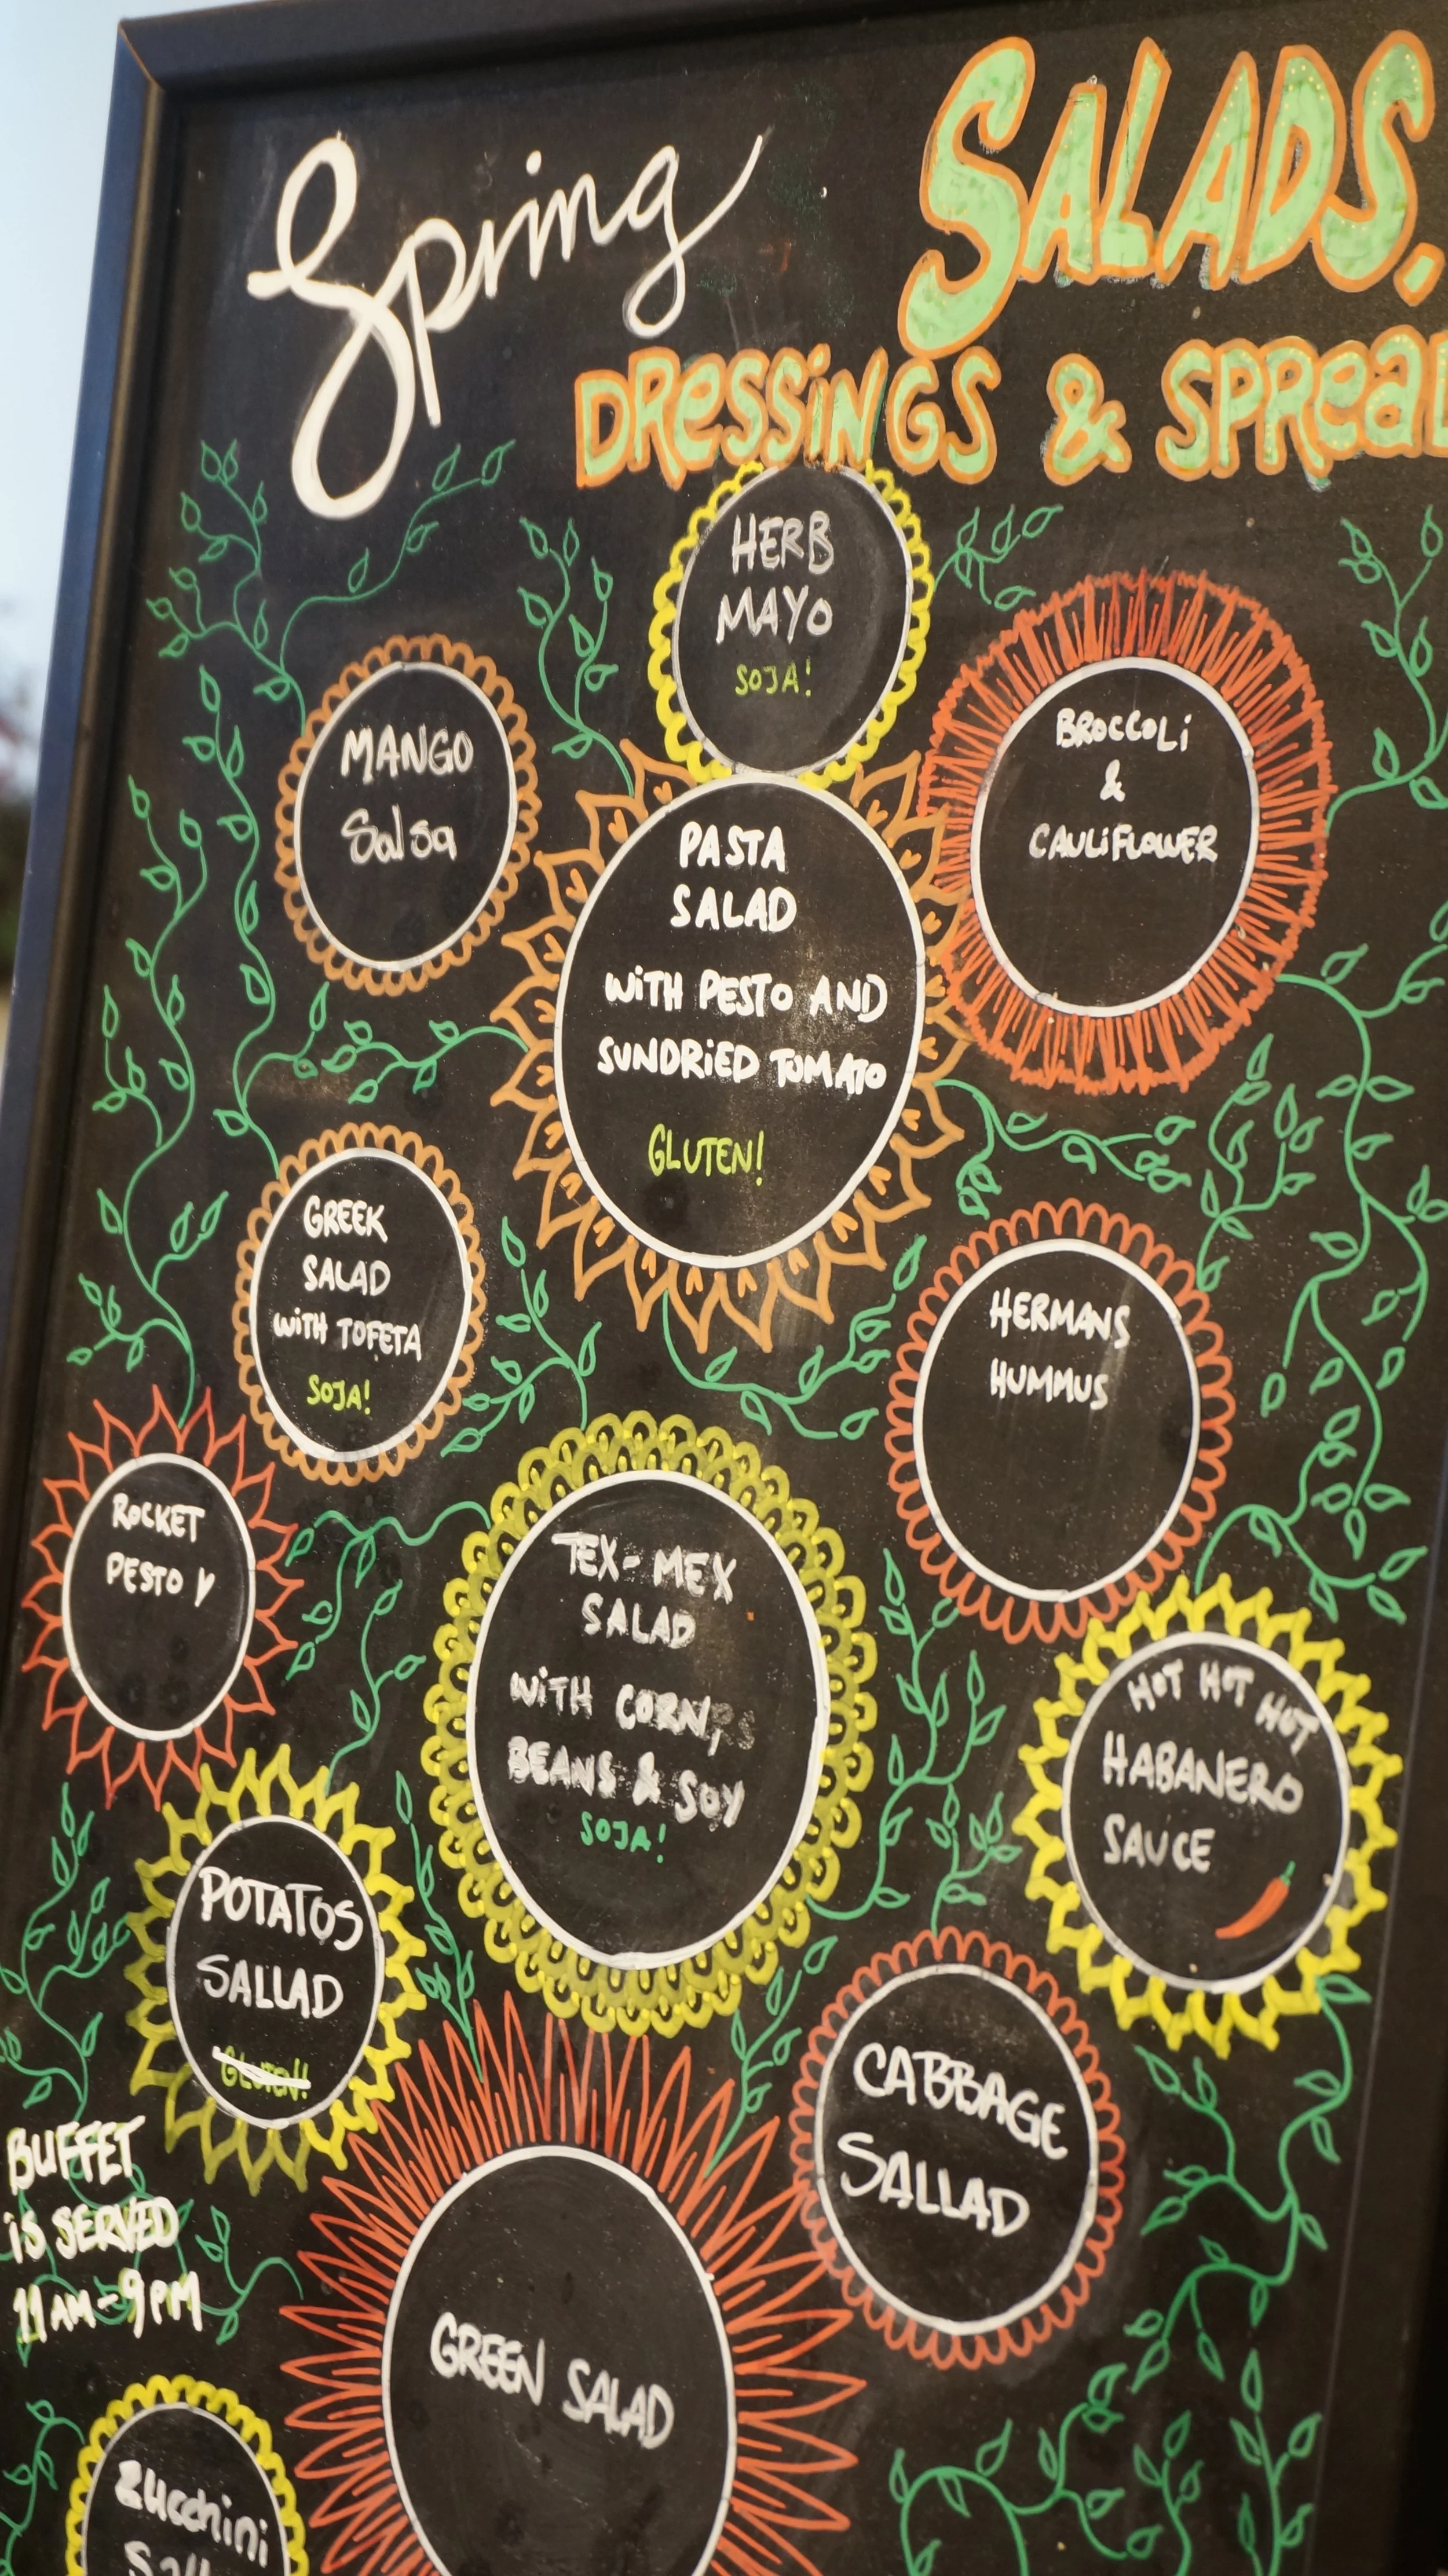 Spring
SALADS.
DRESSINGS & SPREAD
HERB
MAYO
SOJA!
MANGO
Salsa
BROCCOLI
&
CAULIFLOWER
PASTA
SALAD
WITH PESTO AND
SUNDRIED TOMATO
GLUTEN!
GREEK
SALAD
WITH TOFETA
SOJA!
HERMANS
HUMMUS
ROCKET
PESTO
TEX-MEX
SALAD
WITH CORN,
BEANS & SOY
SOJA!
HOT HOT HOT
HABANERO
SAUCE
POTATOS
SALLAD
GLUTEN!
CABBAGE
SALLAD
BUFFET
IS SERVED
11AM-9PM
GREEN SALAD
Zucchini